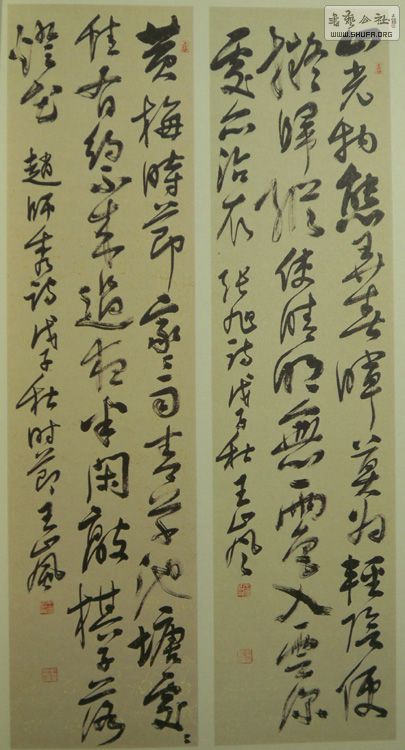 書藝公社
WWW.SHUFA.ORG
山光物態弄春暉莫为輕陰便
擬歸縱使晴明無雨色入雲深
處亦沾衣 張旭詩戊子秋王山風
黄梅時節家〻雨青草池塘處〻
蛙有約不来過夜半閑敲棋子落
燈花 趙師秀詩戊子秋时節王山風